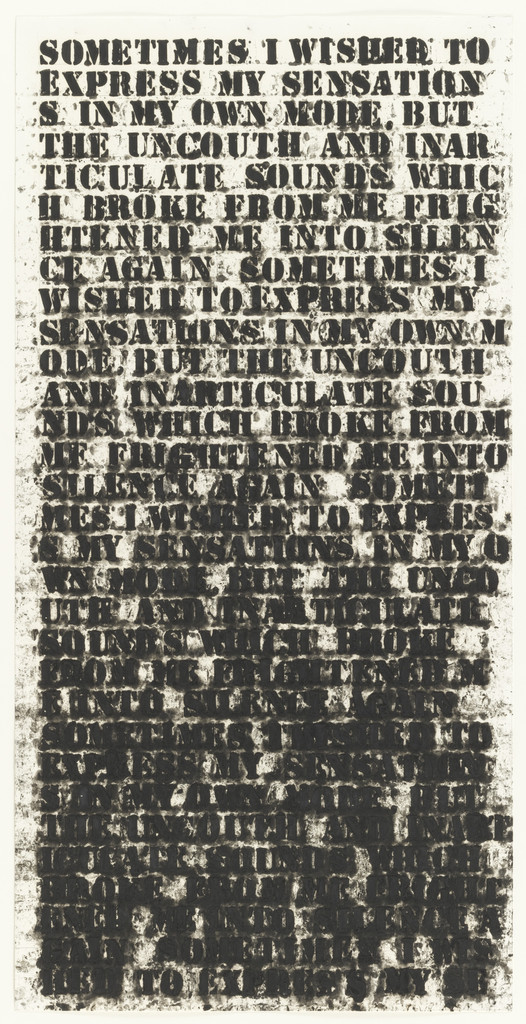 SOMETIMES I WISHED TO
EXPRESS MY SENSATION
S IN MY OWN MODE, BUT
THE UNCOUTH AND INAR
TICULATE SOUNDS WHIC
H BROKE FROM ME FRIG
HTENED ME INTO SILEN
CE AGAIN SOMETIMES I
WISHED TO EXPRESS MY
SENSATIONS IN MY OWN M
ODE, BUT THE UNCOUTH
AND INARTICULATE SOU
NDS WHICH BROKE FROM
ME FRIGHTENED ME INTO
SILENCE AGAIN SOMETI
MES I WISHED TO EXPRES
S MY SENSATIONS IN MY O
WN MODE, BUT THE UNCO
UTH AND INARTICULATE
SOUNDS WHICH BROKE
FROM ME FRIGHTENED M
E INTO SILENCE AGAIN
SOMETIMES I WISHED TO
EXPRESS MY SENSATION
S IN MY OWN MODE, BUT
THE UNCOUTH AND INAR
TICULATE SOUNDS WHICH
BROKE FROM ME FRIGHT
ENED ME INTO SILENCE A
GAIN SOMETIMES I WIS
HED TO EXPRESS MY SE